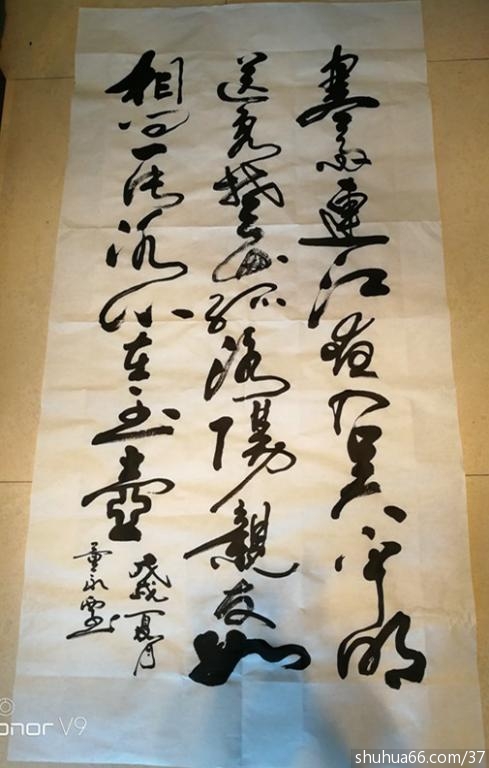 寒雨連江夜入吳平明
送客楚山孤洛陽親友如
相问一片冰心在玉壺
戊戌夏月
董永书
onor V9
shuhua66.com/37